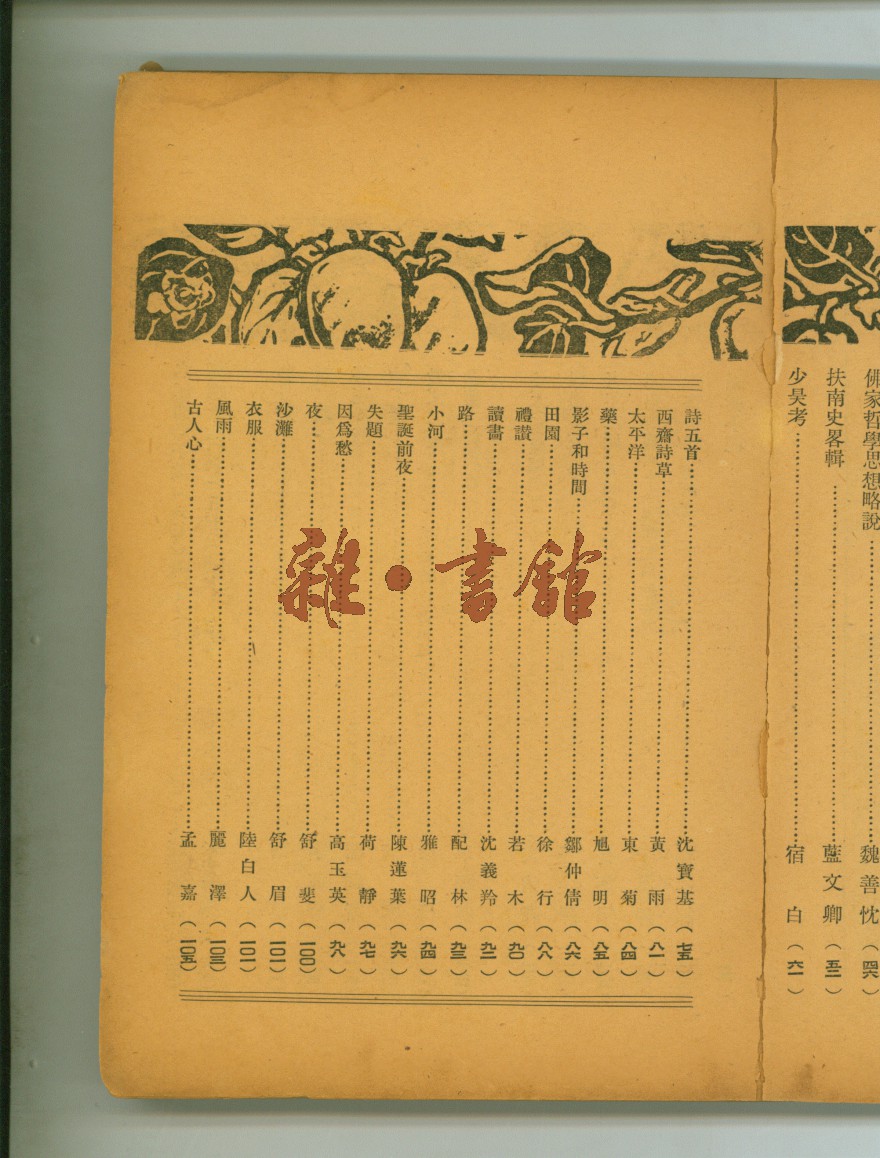 佛家哲學思想略說……魏善忱(四六)
扶南史畧輯……藍文卿(五二)
少昊考……宿白(六一)
詩五首……沈寶基(七五)
西齋詩草……黃雨(八一)
太平洋……東菊(八四)
藥……旭明(八五)
影子和時間……鄒仲倩(八六)
田園……徐行(八八)
禮讚……若木(九〇)
讀畵……沈義羚(九二)
路……配林(九三)
小河……雅昭(九四)
聖誕前夜……陳蓮葉(九六)
失題……荷靜(九七)
因爲愁……高玉英(九八)
夜……舒斐(一〇〇)
沙灘……舒眉(一〇一)
衣服……陸白人(一〇一)
風雨……麗澤(一〇三)
古人心……孟嘉(一〇五)
雜·書館